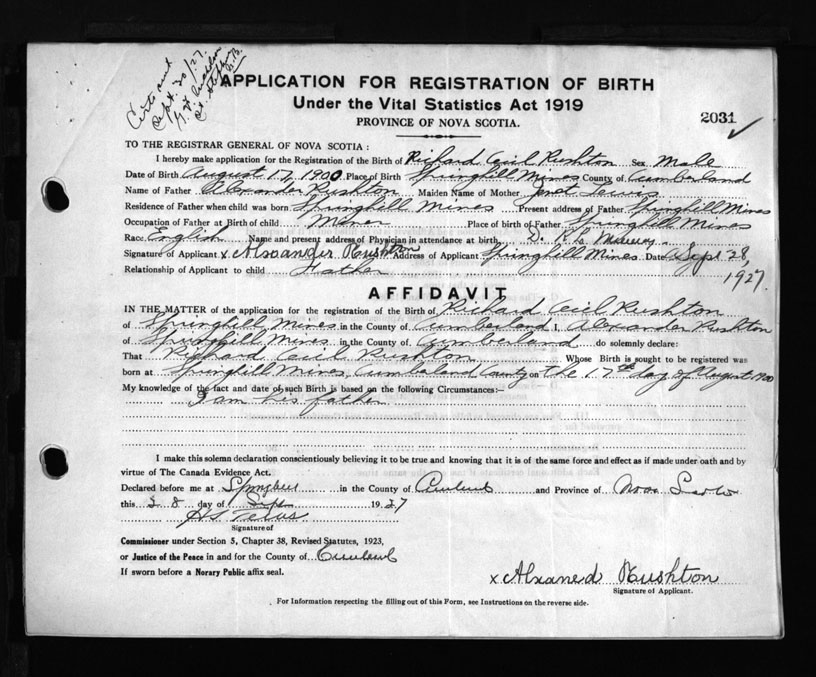 Sept. 20/27.
APPLICATION FOR REGISTRATION OF BIRTH
Under the Vital Statistics Act 1919
PROVINCE OF NOVA SCOTIA.
2031
TO THE REGISTRAR GENERAL OF NOVA SCOTIA :
I hereby make application for the Registration of the Birth of Richard Cecil Rushton Sex Male
Date of Birth August 17, 1900 Place of Birth Springhill Mines County of Cumberland
Name of Father Alexander Rushton Maiden Name of Mother Janet Lewis
Residence of Father when child was born Springhill Mines Present address of Father Springhill Mines
Occupation of Father at Birth of child Miner Place of birth of Father Springhill Mines
Race English Name and present address of Physician in attendance at birth Dr.
Signature of Applicant x Alxoander Rushton Address of Applicant Springhill Mines Date Sept 28,
1927.
Relationship of Applicant to child Father
AFFIDAVIT
IN THE MATTER of the application for the registration of the Birth of Richard Cecil Rushton
of Springhill Mines in the County of Cumberland I, Alexander Rushton
of Springhill Mines in the County of Cumberland do solemnly declare:
That Richard Cecil Rushton Whose Birth is sought to be registered was
born at Springhill Mines, Cumberland County on the 17th day of August 1900
My knowledge of the fact and date of such Birth is based on the following Circumstances:—
I am his father
I make this solemn declaration conscientiously believing it to be true and knowing that it is of the same force and effect as if made under oath and by
virtue of The Canada Evidence Act.
Declared before me at Springhill in the County of Cumberland and Province of Nova Scotia
this 28 day of Sept 1927
Signature of
Commissioner under Section 5, Chapter 38, Revised Statutes, 1923,
or Justice of the Peace in and for the County of Cumberland
If sworn before a Notary Public affix seal.
x Alxaned Rushton
Signature of Applicant.
For Information respecting the filling out of this Form, see Instructions on the reverse side.